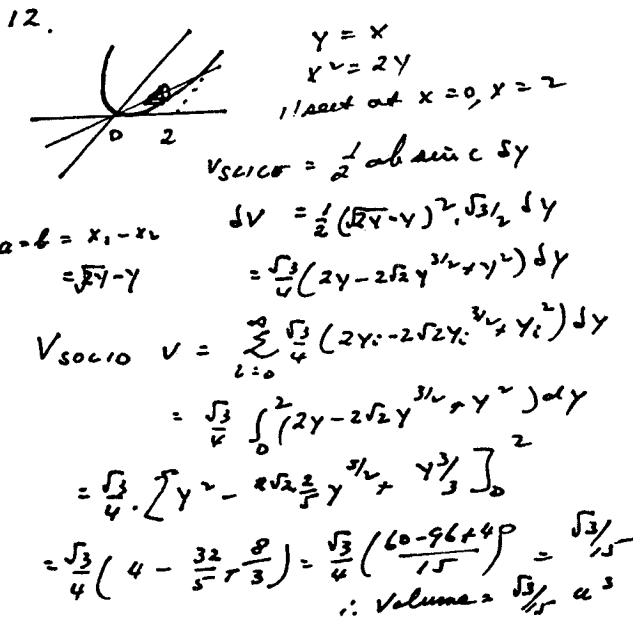 12.
y = x
x² = 2y
i/sect at x = 0, x = 2
0 2
V_SLICE = ½ ab sin C δy
a = b = x₁ - x₂
δV = ½ (√2y - y)² . √3/2 δy
= √2y - y
= √3/4 (2y - 2√2 y^3/2 + y²) δy
V_SOLID V = ∞ Σ i=0 √3/4 (2yᵢ - 2√2 yᵢ^3/2 + yᵢ²) δy
= √3/4 ∫₀² (2y - 2√2 y^3/2 + y²) dy
= √3/4 . [y² - 2√2 2/5 y^5/2 + y³/3]₀²
= √3/4 (4 - 32/5 + 8/3) = √3/4 (60-96+40/15) = √3/15
∴ Volume = √3/15 u³